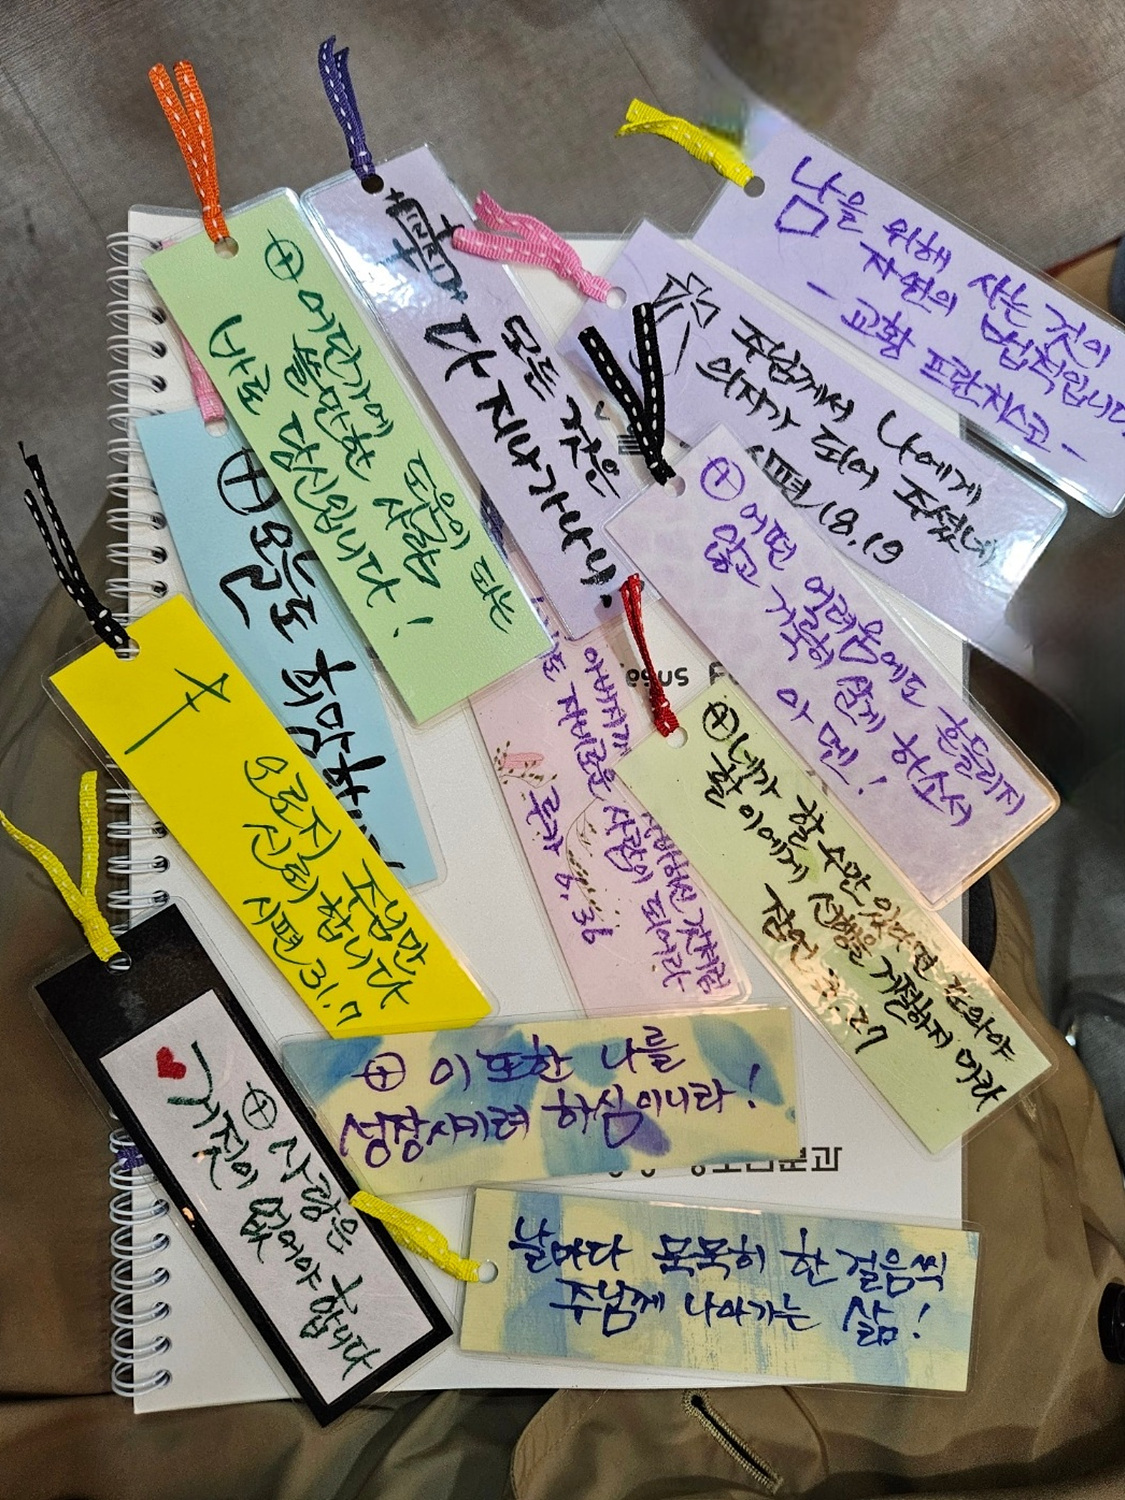 남을 위해 사는 것이
자연의 법칙입니다
- 교황 프란치스코 -
주님께서 나에게
의지가 되어 주셨네
시편 18,19
모든 것은
다 지나가나니
어딘가에 도움이 되는
쓸만한 사람
바로 당신입니다!
오늘도 희망하
어떤 어려움에도 흔들리지
않고 거룩히 살게 하소서
아멘!
네가 할 수만 있다면 도와야
할 이에게 선행을 거절하지 마라
잠언 3,27
아버지께서 자비하신 것처럼
자비로운 사람이 되어라
루카 6,36
오로지 주님만
신뢰합니다
시편 31,7
사랑은
거짓이 없어야 합니다
이 또한 나를
성장시키려 하심이니라!
날마다 묵묵히 한 걸음씩
주님께 나아가는 삶!
분과